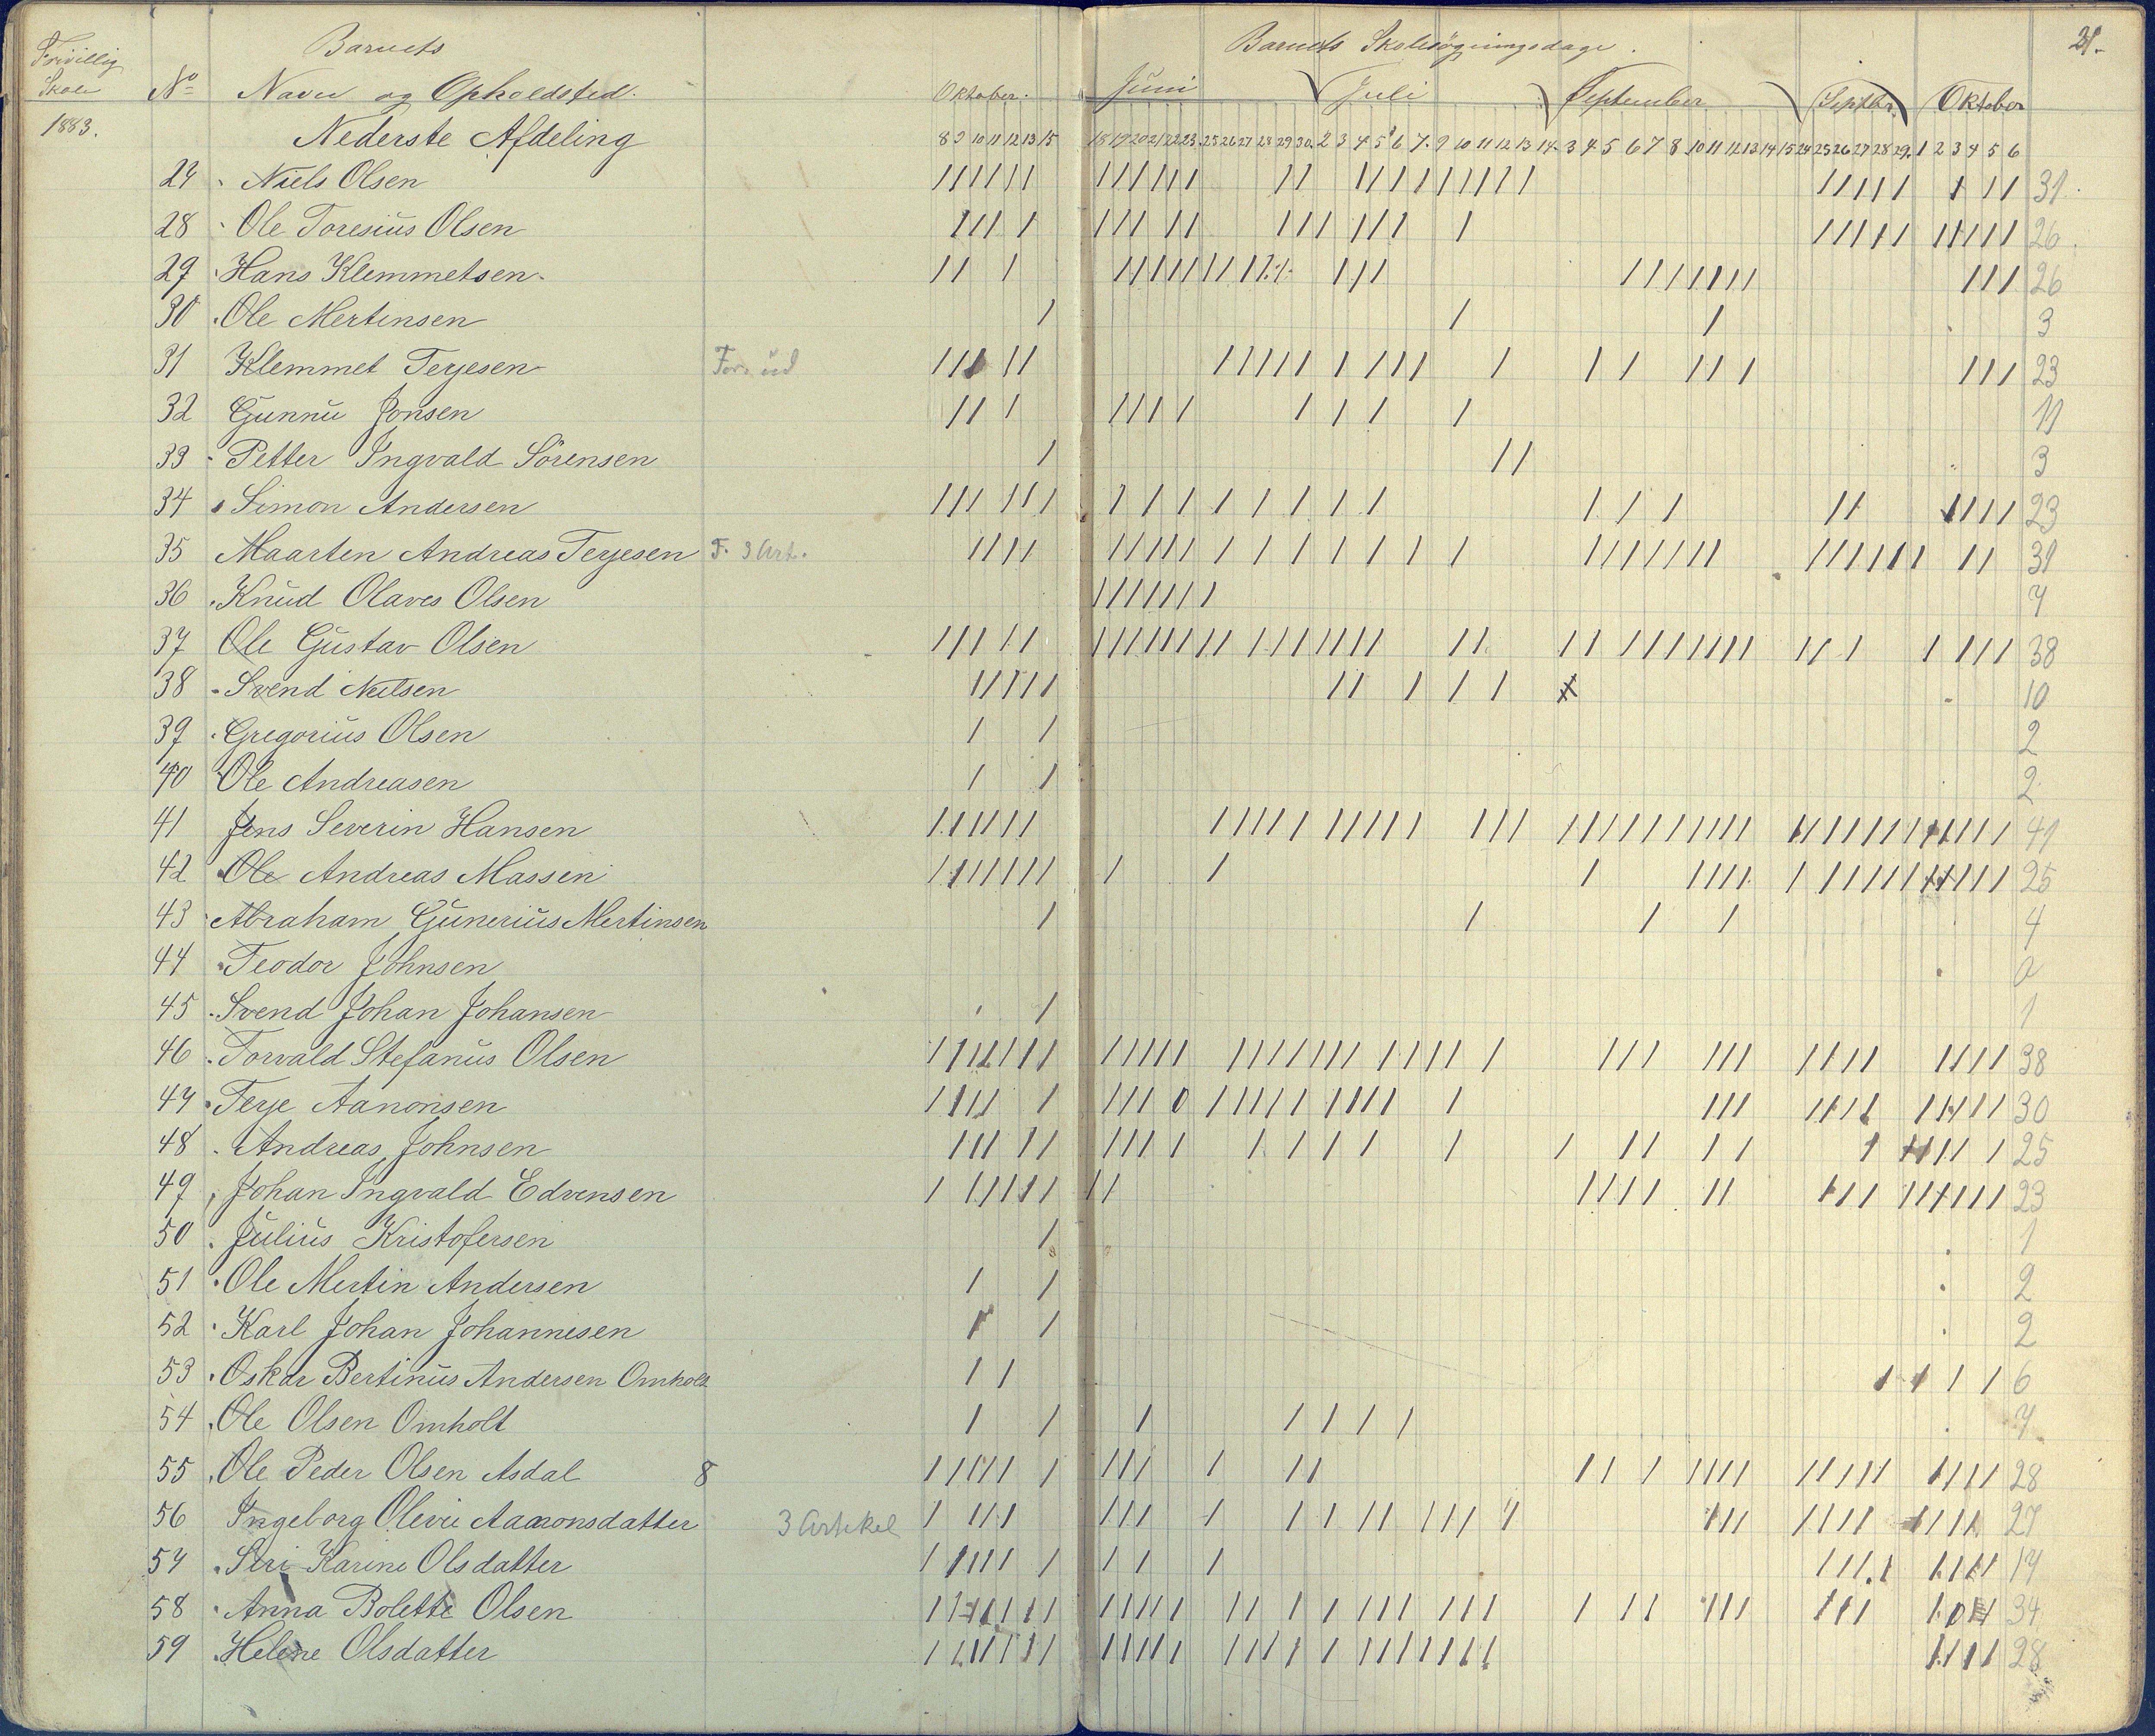 Frivillig
Skole
1883.
Barnets
No Navn og Opholdsted.
Nederste Afdeling
Barnets Skolesøgningsdage.
21.
Oktober. Juni Juli September Septbr. Oktober
8 9 10 11 12 13 15 18 19 20 21 22 23 25 26 27 28 29 30 2 3 4 5 6 7 9 10 11 12 13 14 3 4 5 6 7 8 10 11 12 13 14 15 24 25 26 27 28 29 1 2 3 4 5 6
27 Niels Olsen 31
28 Ole Toresius Olsen 26
29 Hans Klemmetsen 26
30 Ole Mertinsen 3
31 Klemmet Terjesen 23
32 Gunnu Jonsen 11
33 Petter Ingvald Sörensen 3
34 Simon Andersen 23
35 Maarten Andreas Terjesen F. 3 Art. 31
36 Knud Olaves Olsen 7
37 Ole Gustav Olsen 38
38 Svend Nilsen 10
39 Gregorius Olsen 2
40 Ole Andreasen 2
41 Jens Severin Hansen 41
42 Ole Andreas Massen 25
43 Abraham Gunerius Mertinsen 4
44 Teodor Johnsen 0
45 Svend Johan Johansen 1
46 Torvald Stefanus Olsen 38
47 Terje Aanonsen 30
48 Andreas Johnsen 25
49 Johan Ingvald Edvensen 23
50 Julius Kristofersen 1
51 Ole Mertin Andersen 2
52 Karl Johan Johannesen 2
53 Oskar Bertinus Andersen Omholt 6
54 Ole Olsen Omholt 7
55 Ole Peder Olsen Asdal 8 28
56 Ingeborg Olevie Aanonsdatter 3 Artikel 27
57 Siri Karine Olsdatter 17
58 Anna Bolette Olsen 34
59 Helene Olsdatter 28